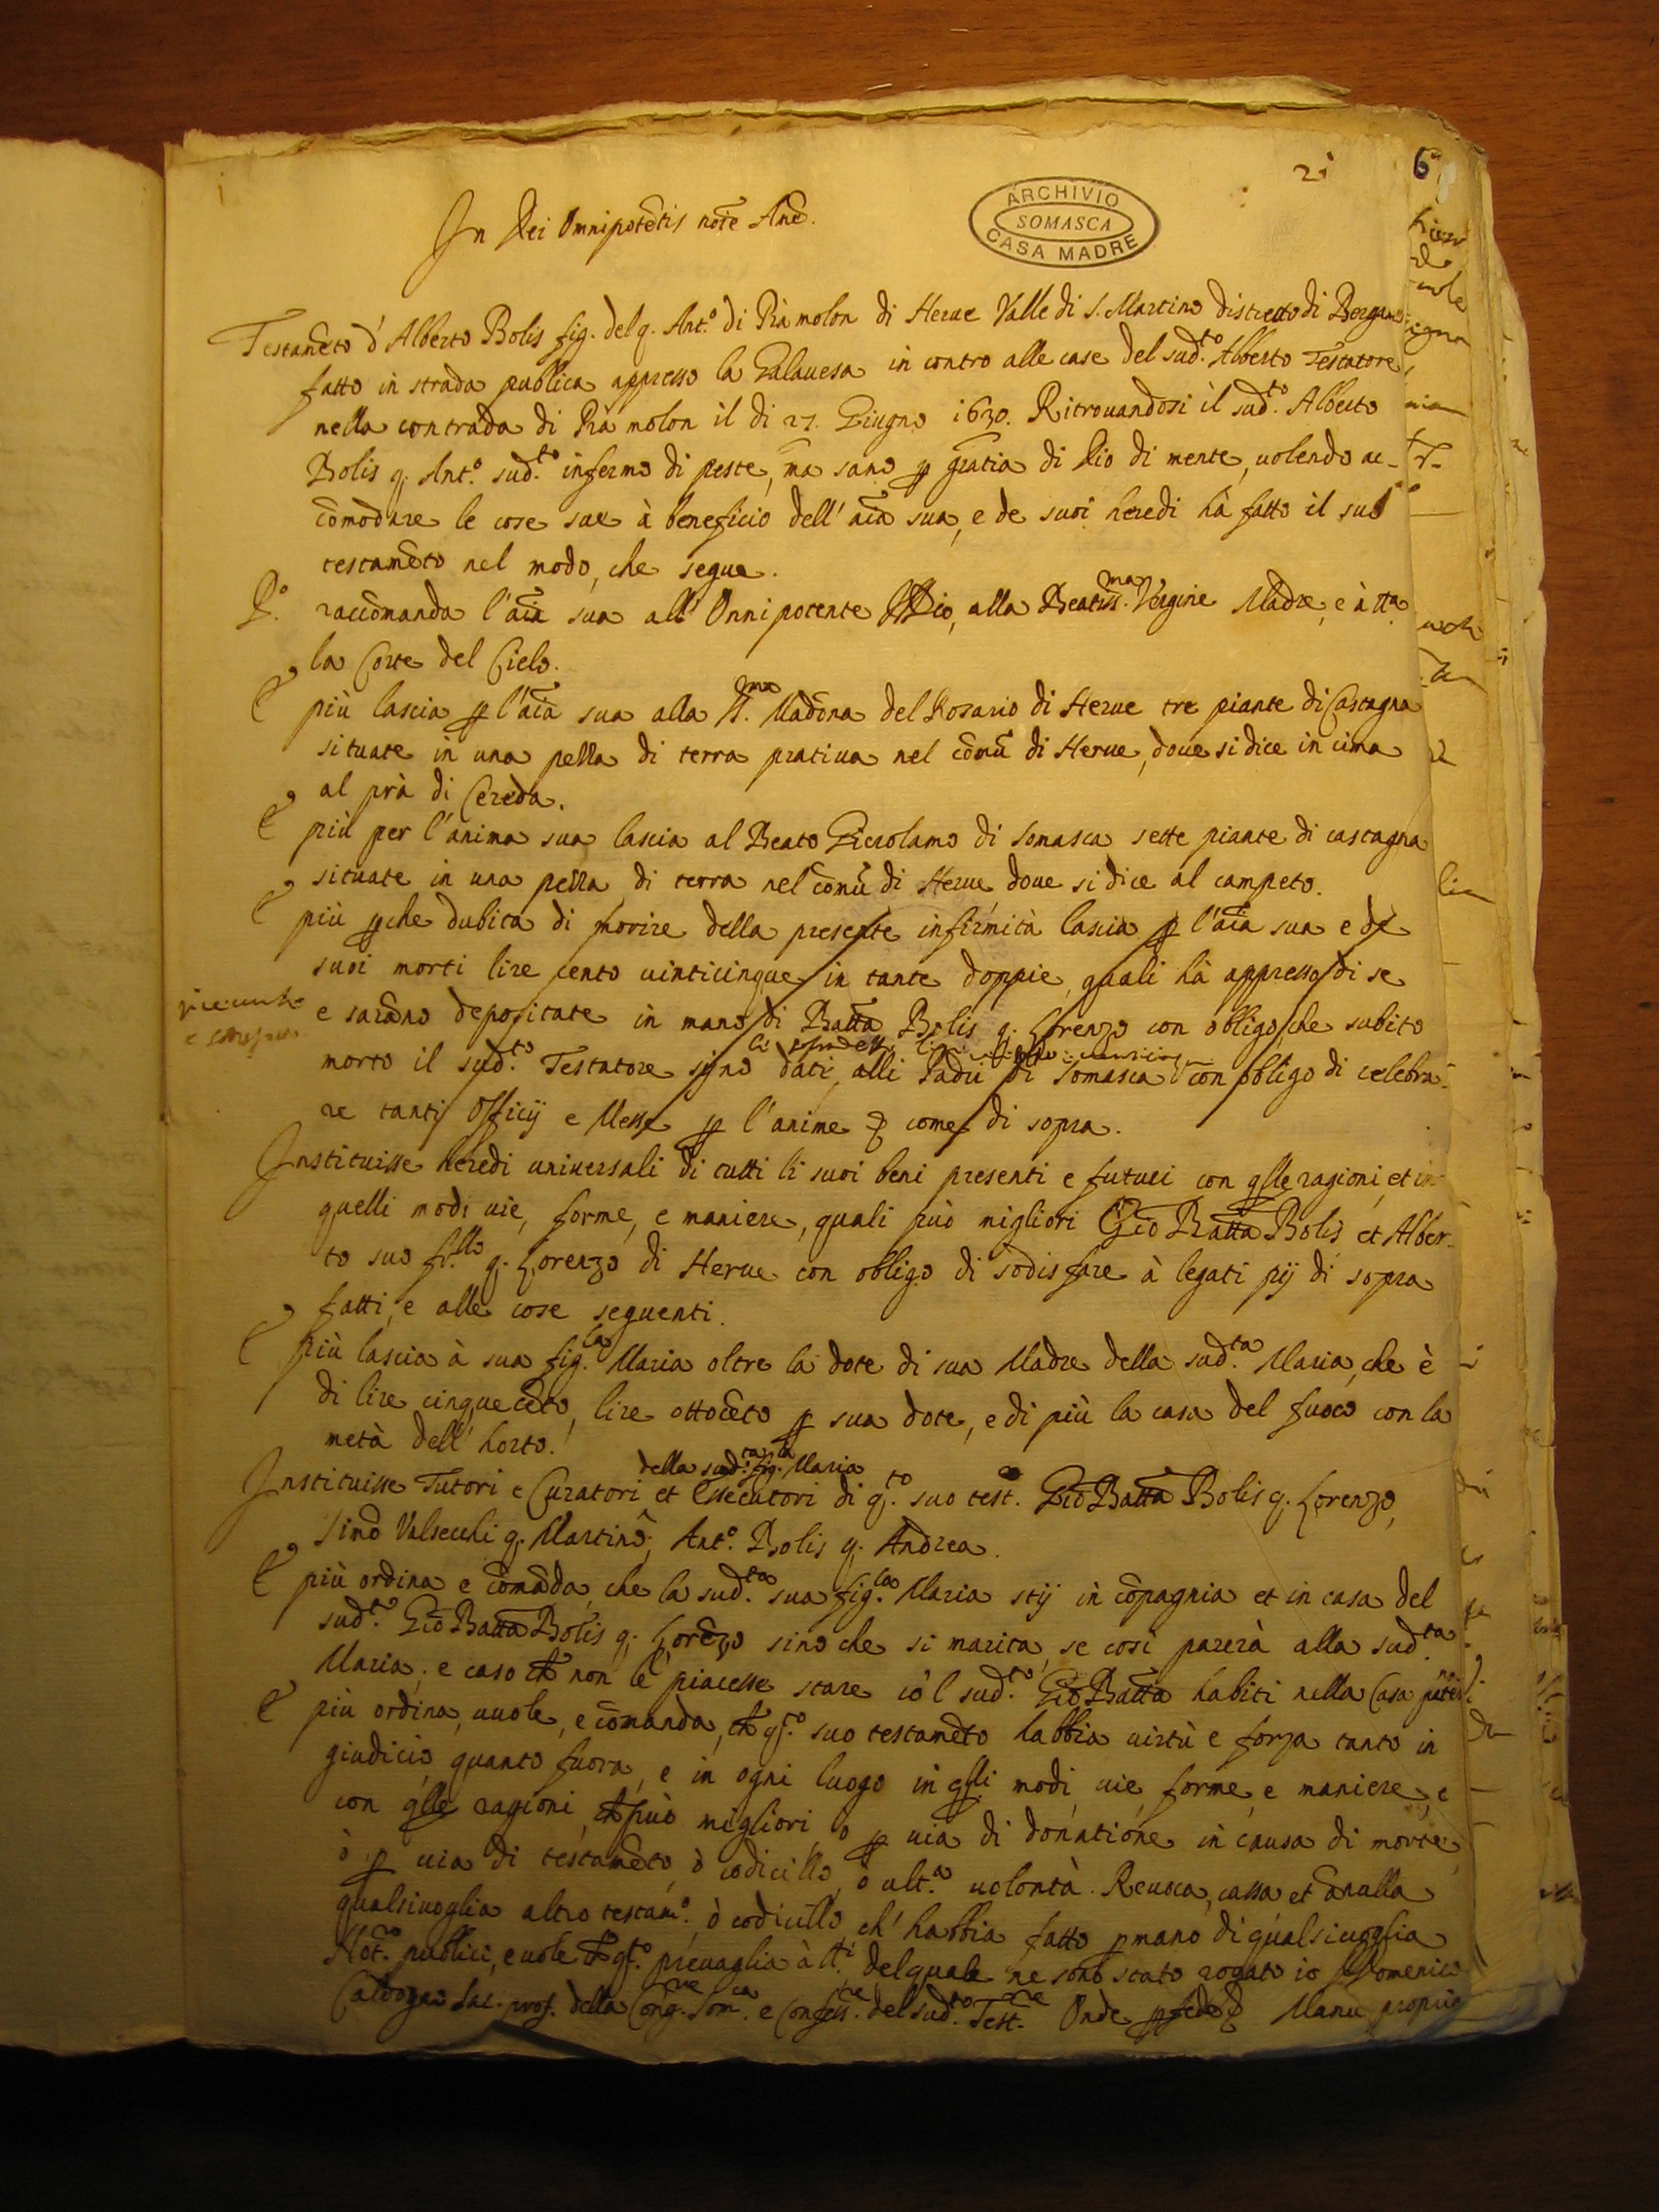 21
6
ARCHIVIO
SOMASCA
CASA MADRE
In Dei Omnipotẽtis noẽ Amẽ.
Testamẽto d'Alberto Bolis fig. del q. Ant.º di Prà molon di Herue Valle di S. Martino distretto di Bergamo
fatto in strada publica appresso la Galauesa in contro alle case del sud.to Alberto Testatore
nella contrada di Prà molon il di 27. Giugno 1630. Ritrouandosi il sud.to Alberto
Bolis q. Ant.º sud.to infermo di peste, ma sano p gratia di Dio di mente, uolendo ac-
cõmodare le cose sue à beneficio dell'aĩa sua, e de suoi heredi hà fatto il suo
testamẽto nel modo, che segue.
P.º raccõmanda l'aĩa sua all'Onnipotente Iddio, alla Beatiss.ma Vergine Madre, e à tta
la Corte del Cielo.
E più lascia p l'aĩa sua alla S.ma Madõna del Rosario di Herue tre piante di Castagna
situate in una pezza di terra pratiua nel comũ di Herue, doue si dice in cima
al prà di Cereda.
E più per l'anima sua lascia al Beato Gierolamo di Somasca sette piante di castagna
situate in una pezza di terra nel comũ di Herue doue si dice al campeto.
E più pche dubita di morire della presente infirmità lascia p l'aĩa sua e de
suoi morti lire cento uinticinque in tante doppie, quali hà appresso di se
e sarãno depositate in mano di Batta Bolis q. Lorenzo con obligo, che subito
morto il sud.to Testatore sijno dati alli Padri di Somasca con obligo di celebra-
re tanti Officij e Messe p l'anime & come di sopra.
Instituisse heredi uniuersali di tutti li suoi beni presenti e futuri con qlle ragioni, et in
quelli modi uie, forme, e maniere, quali può migliori Gio Batta Bolis et Alber-
to suo fr.llo q. Lorenzo di Herue con obligo di sodisfare à legati pij di sopra
fatti, e alle cose seguenti.
E più lascia à sua fig.la Maria oltre la dote di sua Madre della sud.ta Maria, che è
di lire cinquecẽto, lire ottocẽto p sua dote, e di più la casa del fuoco con la
metà dell'horto.
della sud.ta fig.la Maria
Instituisse Tutori e Curatori et Essecutori di q.to suo test. Gio Batta Bolis q. Lorenzo,
Valsecchi q. Martino, Ant.º Bolis q. Andrea.
E più ordina e cõmãda, che la sud.ta sua fig.la Maria stij in cõpagnia et in casa del
sud.to Gio Batta Bolis q. Lorẽzo sino che si marita, se così parerà alla sud.ta
Maria, e caso ch non le piacesse stare cõ'l sud.to Gio Batta habiti nella Casa
E più ordina, uuole, e cõmanda, ch q.to suo testamẽto habbia uirtù e forza tanto in
giudicio, quanto fuora, e in ogni luogo in qlli modi uie forme, e maniere, e
con qlle ragioni, ch può migliori, o p uia di donatione in causa di morte,
ò p uia di testamẽto, ò codicillo, ò ult.a uolontà. Reuoca, cassa et anulla
qualsiuoglia altro testam.º ò codicillo, ch'habbia fatto p mano di qualsiuoglia
Not.ro publici, e uole ch q.to preuaglia à tt.i del quale ne sono stato rogato io Domenico
Sac. prof. della Cong.ne Som.ca e Confess.re del sud.to Test.re Onde p fede & Manu propria